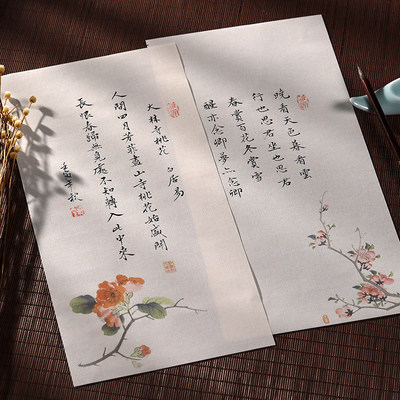 大林寺桃花 白居易
人間四月芳菲盡山寺桃花始盛開
長恨春歸無覓處不知轉入此中來
晓看天色暮看雲
行也思君坐也思君
春賞百花冬賞雪
醒亦念卿夢亦念卿